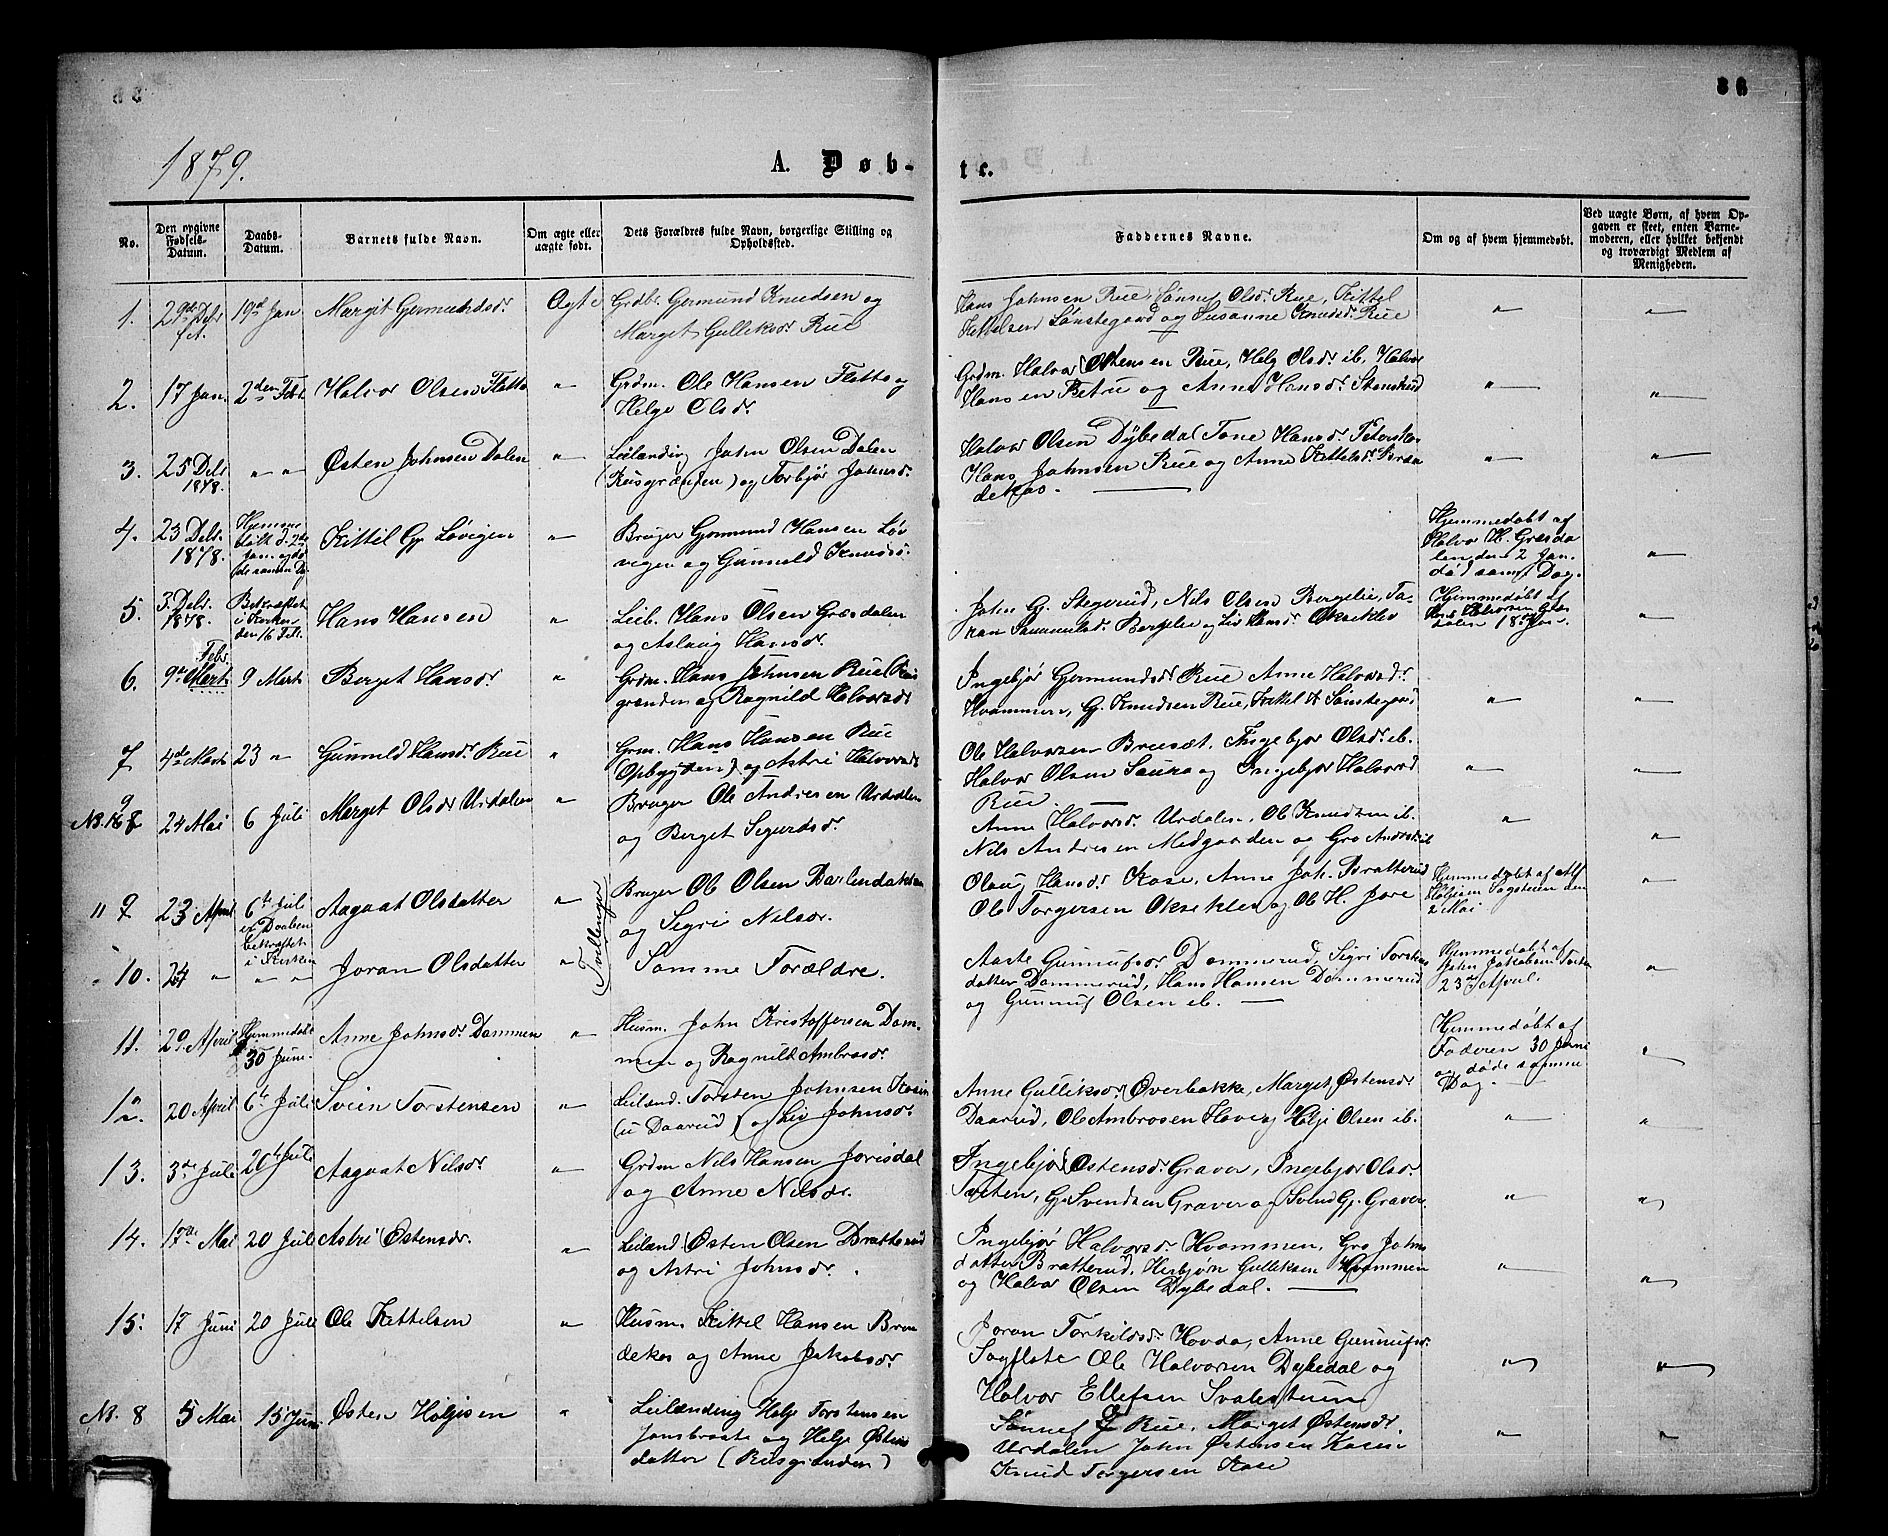 36
1879.
A. Døb-
te.
No.
Den opgivne Fødsels-Datum.
Daabs-Datum.
Barnets fulde Navn.
Om ægte eller uægte født.
Dets Forældres fulde Navn, borgerlige Stilling og Opholdssted.
Faddernes Navne.
Om og af hvem hjemmedøbt.
Ved uægte Børn, af hvem Opgaven er skeet, enten Barnemoderen, eller hvilket bekjendt og troværdigt Medlem af Menigheden.
1. 19de Jan Margit Germundsdr Ægte Grdbr. Germund Knudsen og
Marget Gulliksdr Rue
Hans Johnsen Rue, Sønnef Olsdr Rue, Kittel
Kittelsen Sønstegaard og Susanne Knudsdr Rue
2. 17 Jan. 2den Febr. Halvor Olsen Flatto " Grdm. Ole Hansen Flatto og
Helge Olsdr.
Grdm. Halvor Østensen Rue, Helg Olsdr. ib. Halvor
Hansen og Anne Hansdr.
3. 25 Debr 1878. " " Østen Johnsen Dalen " Leilænding John Olsen Dalen
(Rusgrænden) og Torbjør Johnsd.
Halvor Olsen Dybedal Tone Hansdr.
Hans Johnsen Rue og Anne Kittelsdr. Bræn
dekas.
4. 23 Debr. 1878. Hjemme døbt d. 2de Jan. og døde samme Dg. Kittil G. Løvigen " Bruger Germund Hansen Løv
vigen og Gunnild Knudsd.
Hjemmedøbt af
Halvor H. Græsda
len den 2 Jan.
død samt. Dag.
5. 3. Debr. 1878. Bekræftet i Kirken den 16 Feb. Hans Hansen " Leil. Hans Olsen Græsdalen
og Aslaug Hansdr.
John G. Stegerud, Nils Olsen Bergelie, Ta-
ran Samuelsdr. Bergelie og Liv Hansdr. Økseklev
Hjemmedøbt af
Halvorsen Græs
dalen 18de Jan.
6. 9de Febr. Mart 9 Mart Berget Hansdr. " Grdm. Hans Johnsen Rue (Rus
grænden og Ragnild Halvorsdr
Ingebjør Germundsdr Rue Anne Halvorsdr.
Hvammen, G. Knudsen Rue, Kittel K Sønstegaard
7 4de Marts 23 " Gunnild Hansdr Rue " Grm. Hans Hansen Rue
(Opbygden) og Astri Halvorsd
Ole Halvorsen Bruesæt. Ingebjor Olsdr. ib.
Halvor Olsen Sauka og Ingebjør Halvorsd
Rue.
24 Mai 6 Juli Marget Olsdr Urdalen " Bruger Ole Andresen Urdalen
og Berget Sigurdsdr.
Anne Halvorsdr. Urdalen, Ole Knudsen ib.
Nils Andresen Medgaarden og Gro Andersd. ib
" 9 23 April 6te Juli er Daaben bekræftet i Kirken Aagaat Olsdatter " (Tvillinger Bruger Ole Olsen
og Sigri Nilsdr.
Olaug Hansdr. Kase, Anne Joh. Bratterud
Ole Torgersen Økseklev og Ole H. Jore
Hjemmedøbt af Alf
2 Mai
10. 24 " " " Joran Olsdatter " Samme Forældre.
Aaste Gunnufsdr Dammerud, Sigri Torsteins
datter Dammerud, Hans Hansen Dammerud
og Gunnuf Olsen ib.
Hjemmedøbt af
John Jakobsen
23de April.
11. 29 April Hjemmedøbt 30 Juni. Anne Johnsdr Dammen " Husm. John Kristoffersen Dam-
men og Ragnild Ambrosdr.
Hjemmedøbt af
Faderen 30 Juni
og døde samme
Dag.
12. 20 April 6te Juli Svein Torstensen " Leiland. Torsten Johnsen Kasin
(u Daarud) og Liv Johnsdr.
Anne Gulliksdr Øverbakke, Marget Østensdr
Daarud, Ole Ambrosen Hove og Holje Olsen ib.
13. 3de Juli 20de Juli Aagaat Nilsdr " Grdm Nils Hansen Jorisdal
og Anne Nilsdr.
Ingebjør Østensdr Graver, Ingebjor Olsdr.
G. Svendsen Graver og Svend Gj. Graver
14. 17de Mai 20 Juli Astri Østensdr. " Leiland Østen Olsen Bratterud
og Astri Johnsdr.
Ingebjør Halvorsdr. Hvammen, Gro Johns
datter Bratterud, Herbjørn Gulliksen Hvammen
og Halvor Olsen Dybedal.
15. 17 Juni 20 Juli Ole Kittelsen " Husm. Kittel Hansen Bræn
dekas og Anne Jakobsdr.
Joran Torkildsdr. Hovda, Anne Gunnufsr.
Sagflate Ole Halvorsen Dybedal og
Halvor Ellefsen Svalestuen
NB. 8 5 Mai 15 Juni Østen Holjesen " Leilænding Holje Torstensen
Jønsbraate og Helje Østens
datter (Rusgrænden)
Sønnef G Rue, Marget Østensdr.
Urdalen John Østensen Kasin
Knud Torgersen Kase